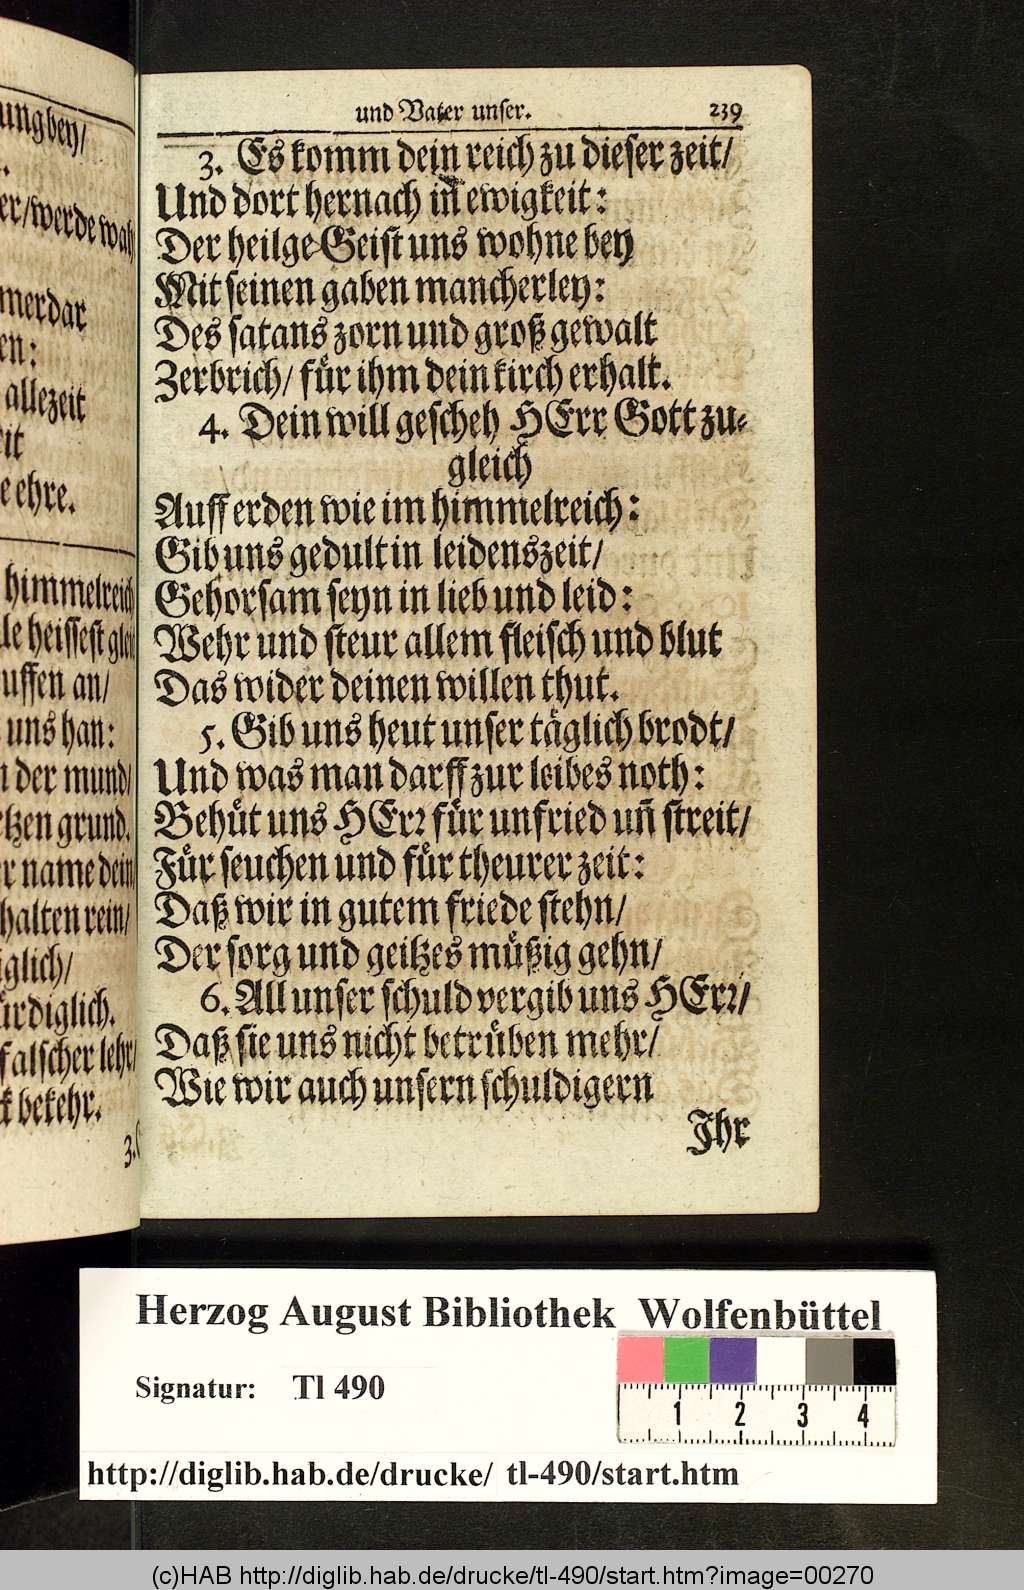 ung bey/
.
er/werde wah
merdar
en:
allezeit
it
e ehre.
himmelreich
le heissest glei
uffen an/
uns han:
n der mund/
tzen grund.
r name dein
halten rein/
iglich/
ürdiglich.
falscher lehr/
k bekehr.
3.
und Vater unser. 239
3. Es komm dein reich zu dieser zeit/
Und dort hernach in ewigkeit:
Der heilge Geist uns wohne bey
Mit seinen gaben mancherley:
Des satans zorn und groß gewalt
Zerbrich/ für ihm dein kirch erhalt.
4. Dein will gescheh HErr Gott zu-
gleich
Auff erden wie im himmelreich:
Gib uns gedult in leidenszeit/
Gehorsam seyn in lieb und leid:
Wehr und steur allem fleisch und blut
Das wider deinen willen thut.
5. Gib uns heut unser täglich brodt/
Und was man darff zur leibes noth:
Behüt uns HErr für unfried uñ streit/
Für seuchen und für theurer zeit:
Daß wir in gutem friede stehn/
Der sorg und geitzes müßig gehn/
6. All unser schuld vergib uns HErr/
Daß sie uns nicht betrüben mehr/
Wie wir auch unsern schuldigern
Ihr
Herzog August Bibliothek Wolfenbüttel
Signatur: Tl 490
1 2 3 4
http://diglib.hab.de/drucke/ tl-490/start.htm
(c)HAB http://diglib.hab.de/drucke/tl-490/start.htm?image=00270